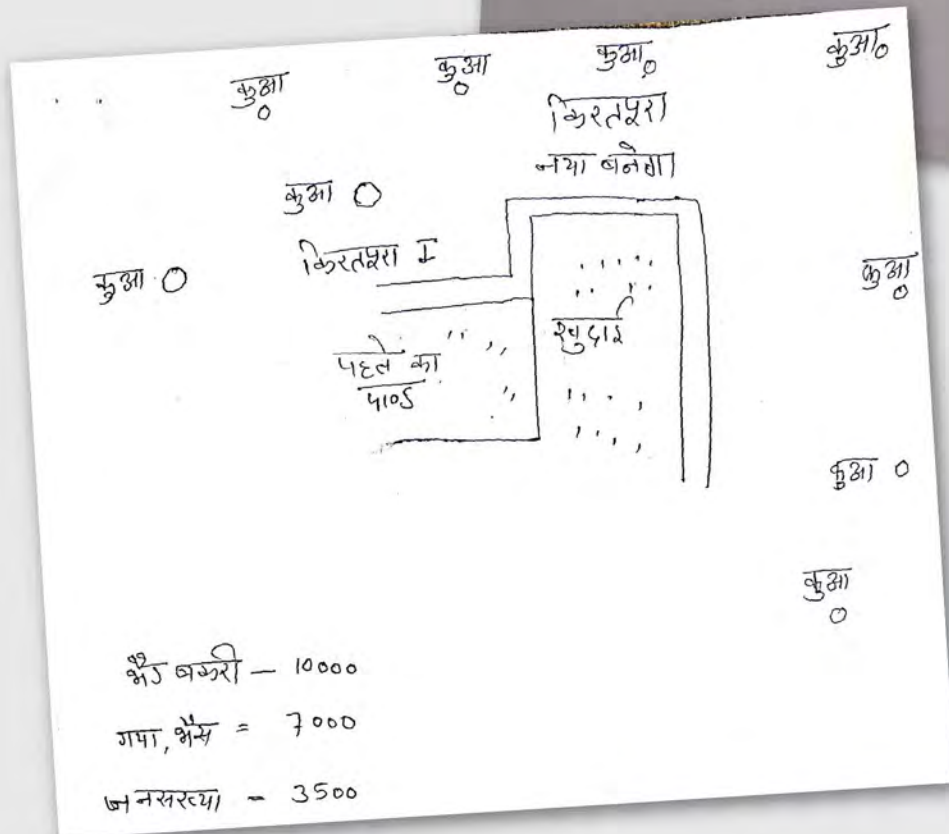 कुआ
कुआ
कुआ
कुआ
किरतपूरा
नया बनेगा
कुआ
किरतपूरा I
कुआ
कुआ
खुदाई
पहले का
पाण्ड
कुआ
कुआ
भैड बकरी — 10000
गया, भैस = 7000
जनसख्या - 3500